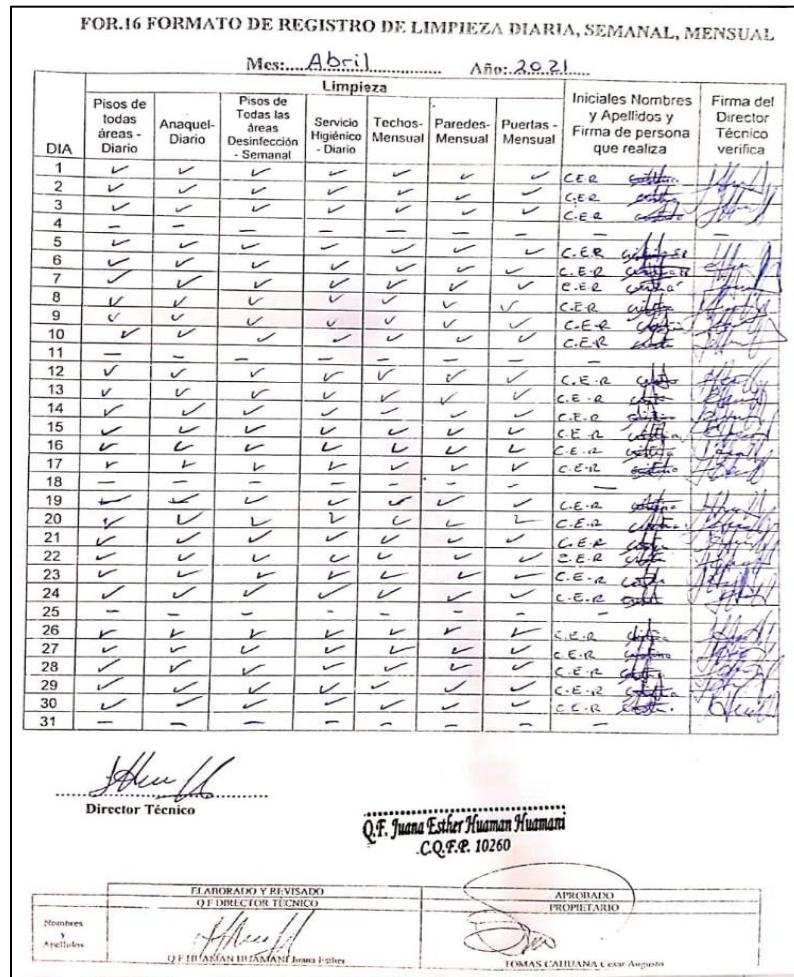 FOR.16 FORMATO DE REGISTRO DE LIMPIEZA DIARIA, SEMANAL, MENSUAL
Mes:....Abril............... Año:.2021......
DIA
Limpieza
Pisos de todas áreas - Diario
Anaquel- Diario
Pisos de Todas las áreas Desinfección - Semanal
Servicio Higiénico - Diario
Techos- Mensual
Paredes- Mensual
Puertas - Mensual
Iniciales Nombres y Apellidos y Firma de persona que realiza
Firma del Director Técnico verifica
1 ✓ ✓ ✓ ✓ ✓ ✓ ✓ C.E.R
2 ✓ ✓ ✓ ✓ ✓ ✓ ✓ C.E.R
3 ✓ ✓ ✓ ✓ ✓ ✓ ✓ C.E.R
4 — — — — — — — —
5 ✓ ✓ ✓ ✓ ✓ ✓ ✓ C.E.R
6 ✓ ✓ ✓ ✓ ✓ ✓ ✓ C.E.R
7 ✓ ✓ ✓ ✓ ✓ ✓ ✓ C.E.R
8 ✓ ✓ ✓ ✓ ✓ ✓ ✓ C.E.R
9 ✓ ✓ ✓ ✓ ✓ ✓ ✓ C.E.R
10 ✓ ✓ ✓ ✓ ✓ ✓ ✓ C.E.R
11 — — — — — — — —
12 ✓ ✓ ✓ ✓ ✓ ✓ ✓ C.E.R
13 ✓ ✓ ✓ ✓ ✓ ✓ ✓ C.E.R
14 ✓ ✓ ✓ ✓ ✓ ✓ ✓ C.E.R
15 ✓ ✓ ✓ ✓ ✓ ✓ ✓ C.E.R
16 ✓ ✓ ✓ ✓ ✓ ✓ ✓ C.E.R
17 ✓ ✓ ✓ ✓ ✓ ✓ ✓ C.E.R
18 — — — — — — — —
19 ✓ ✓ ✓ ✓ ✓ ✓ ✓ C.E.R
20 ✓ ✓ ✓ ✓ ✓ ✓ ✓ C.E.R
21 ✓ ✓ ✓ ✓ ✓ ✓ ✓ C.E.R
22 ✓ ✓ ✓ ✓ ✓ ✓ ✓ C.E.R
23 ✓ ✓ ✓ ✓ ✓ ✓ ✓ C.E.R
24 ✓ ✓ ✓ ✓ ✓ ✓ ✓ C.E.R
25 — — — — — — — —
26 ✓ ✓ ✓ ✓ ✓ ✓ ✓ C.E.R
27 ✓ ✓ ✓ ✓ ✓ ✓ ✓ C.E.R
28 ✓ ✓ ✓ ✓ ✓ ✓ ✓ C.E.R
29 ✓ ✓ ✓ ✓ ✓ ✓ ✓ C.E.R
30 ✓ ✓ ✓ ✓ ✓ ✓ ✓ C.E.R
31 — — — — — — — —
Director Técnico
Q.F. Juana Esther Huaman Huamani
C.Q.F.P. 10260
ELABORADO Y REVISADO
Q.F DIRECTOR TÉCNICO
APROBADO
PROPIETARIO
Nombres
y
Apellidos
Q.F HUAMAN HUAMANI Juana Esther
TOMAS CAHUANA Cesar Augusto